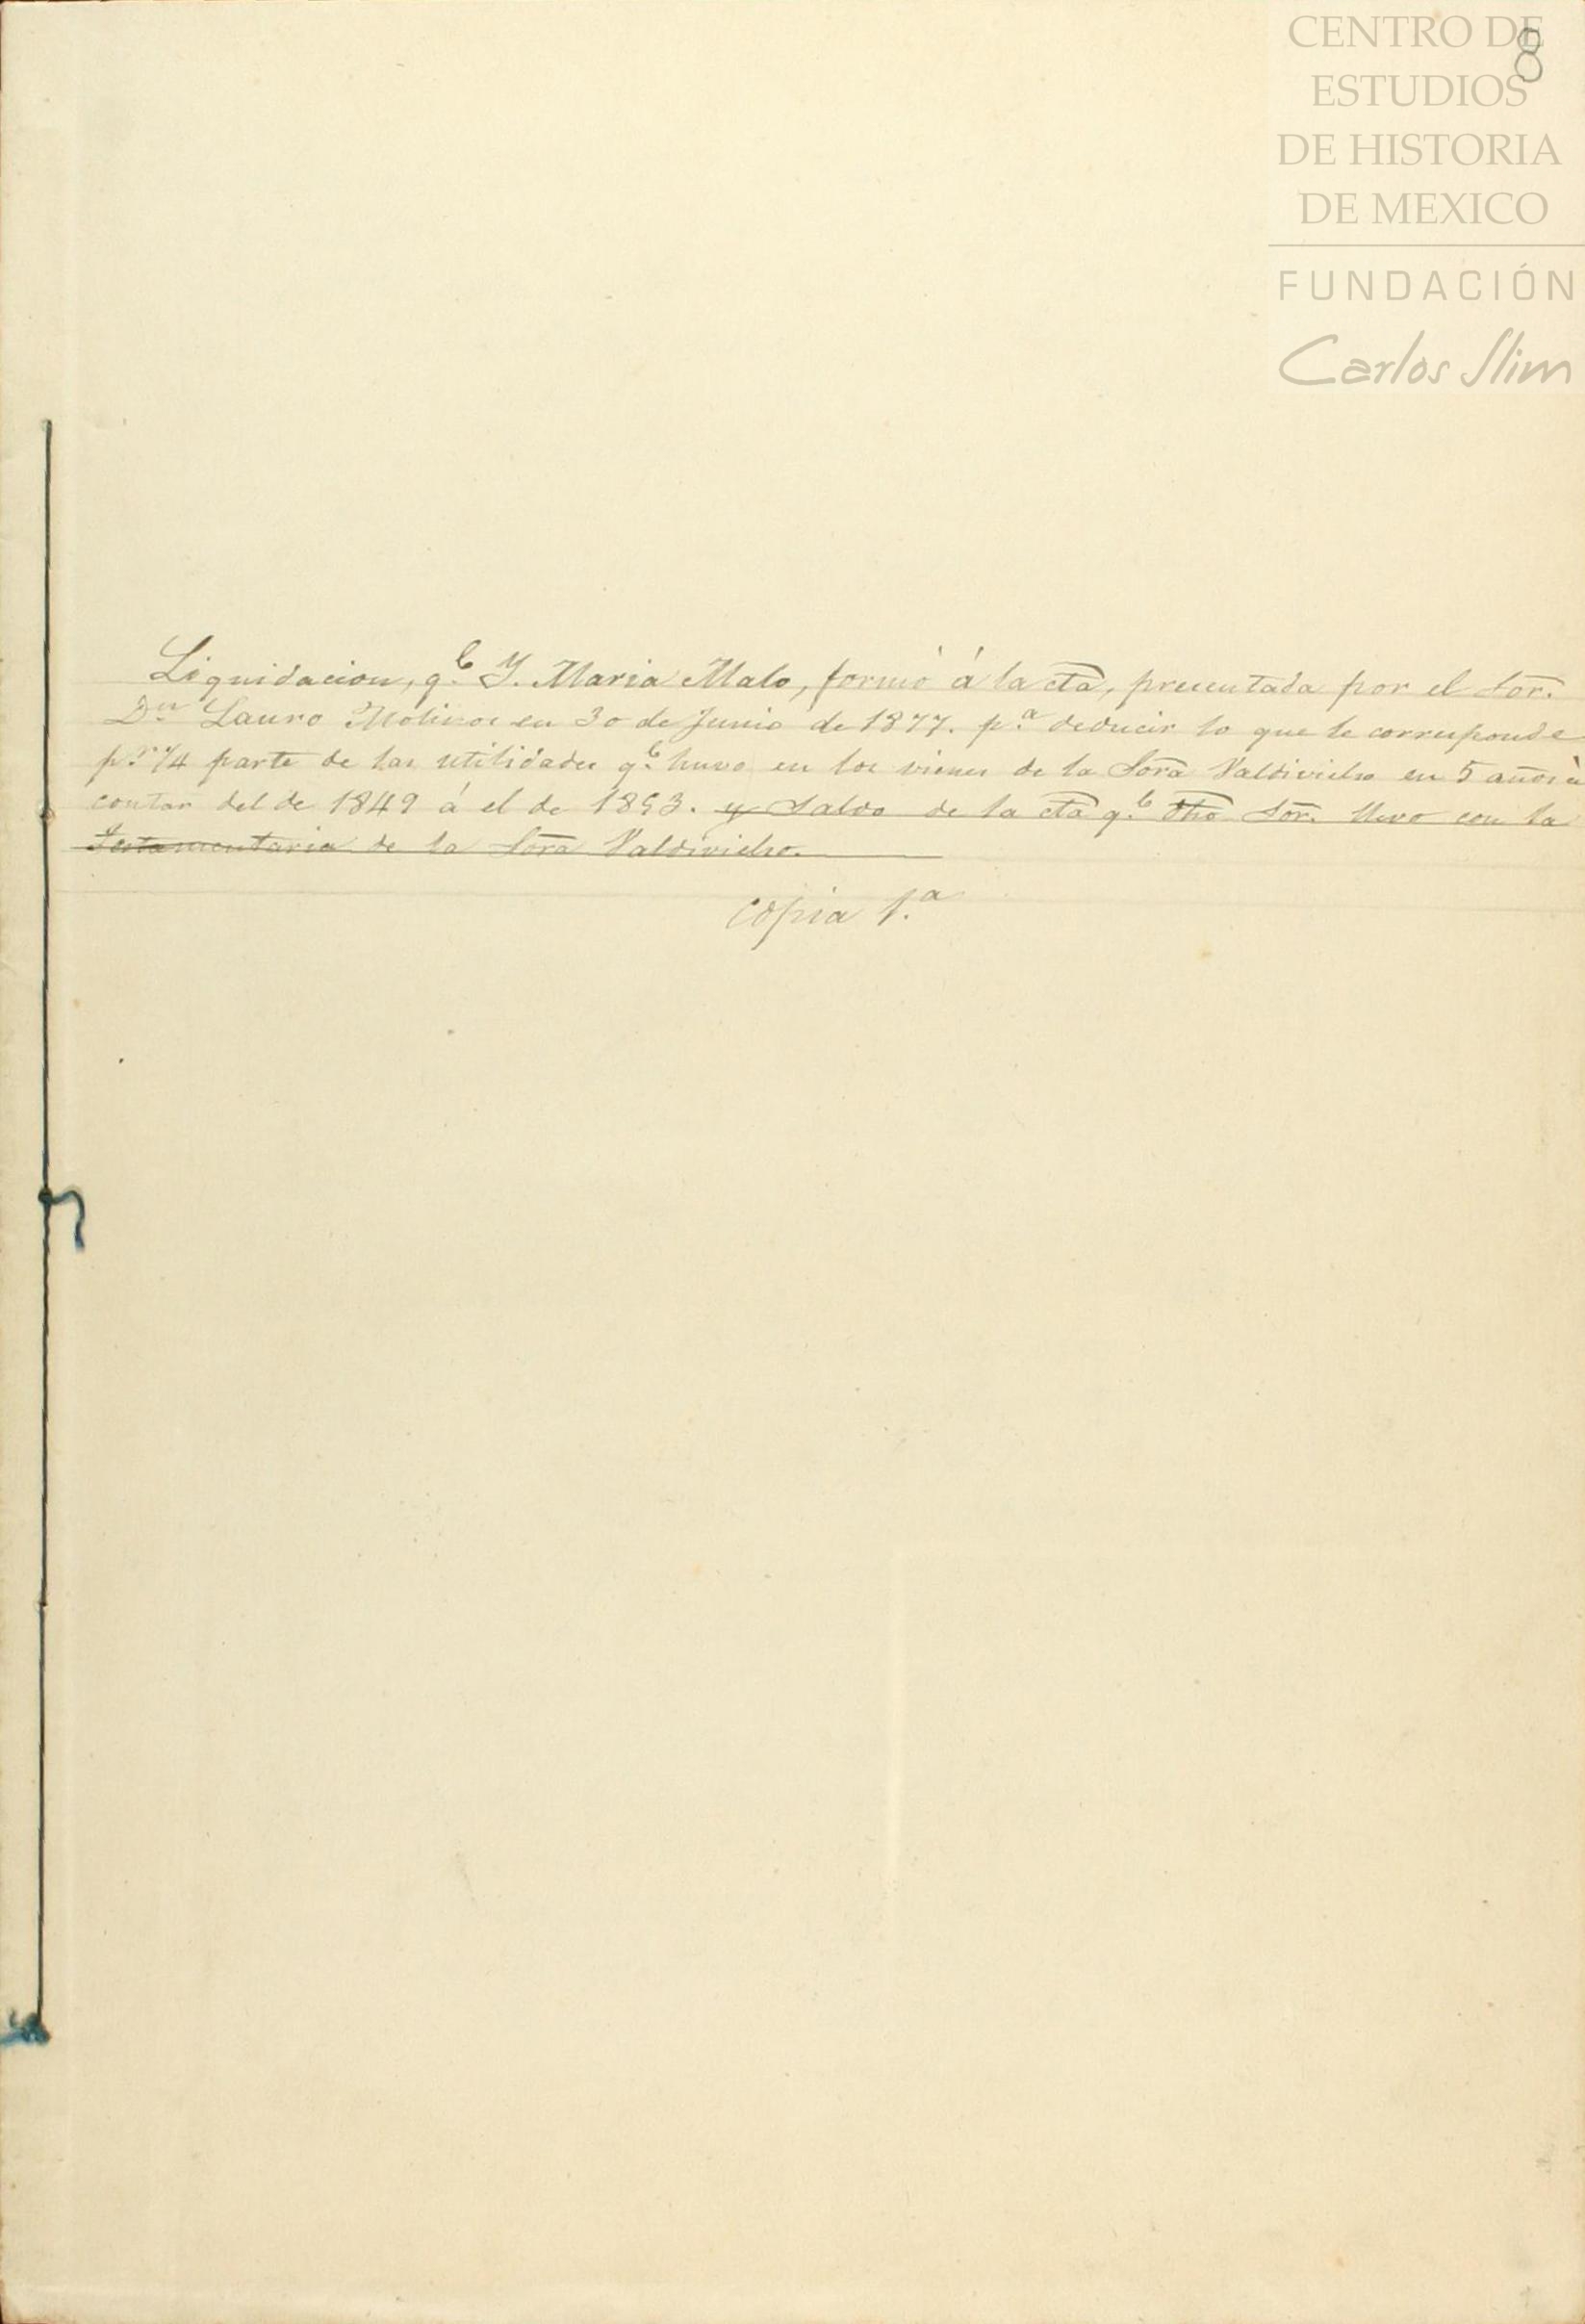 CENTRO DE
ESTUDIOS
DE HISTORIA
DE MEXICO
FUNDACIÓN
Carlos Slim
8
Liquidacion, q.e Y. Maria Malo, formó á la cta, presentada por el Sor.
Dn Lauro Molinos en 30 de Junio de 1877. p.a deducir lo que le corresponde
p.r 1/4 parte de las utilidades q.e huvo en los vienes de la Sora Valdivielso en 5 años à
contar del de 1849 á el de 1853. y Saldo de la cta q.e dho Sor. llevo con la
Testamentaria de la Sora Valdivielso.
Copia 1.a